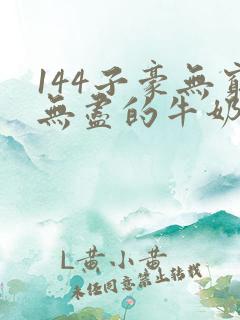 144子豪無窮
無盡的牛奶
L黄小黄
未经同意禁止转载